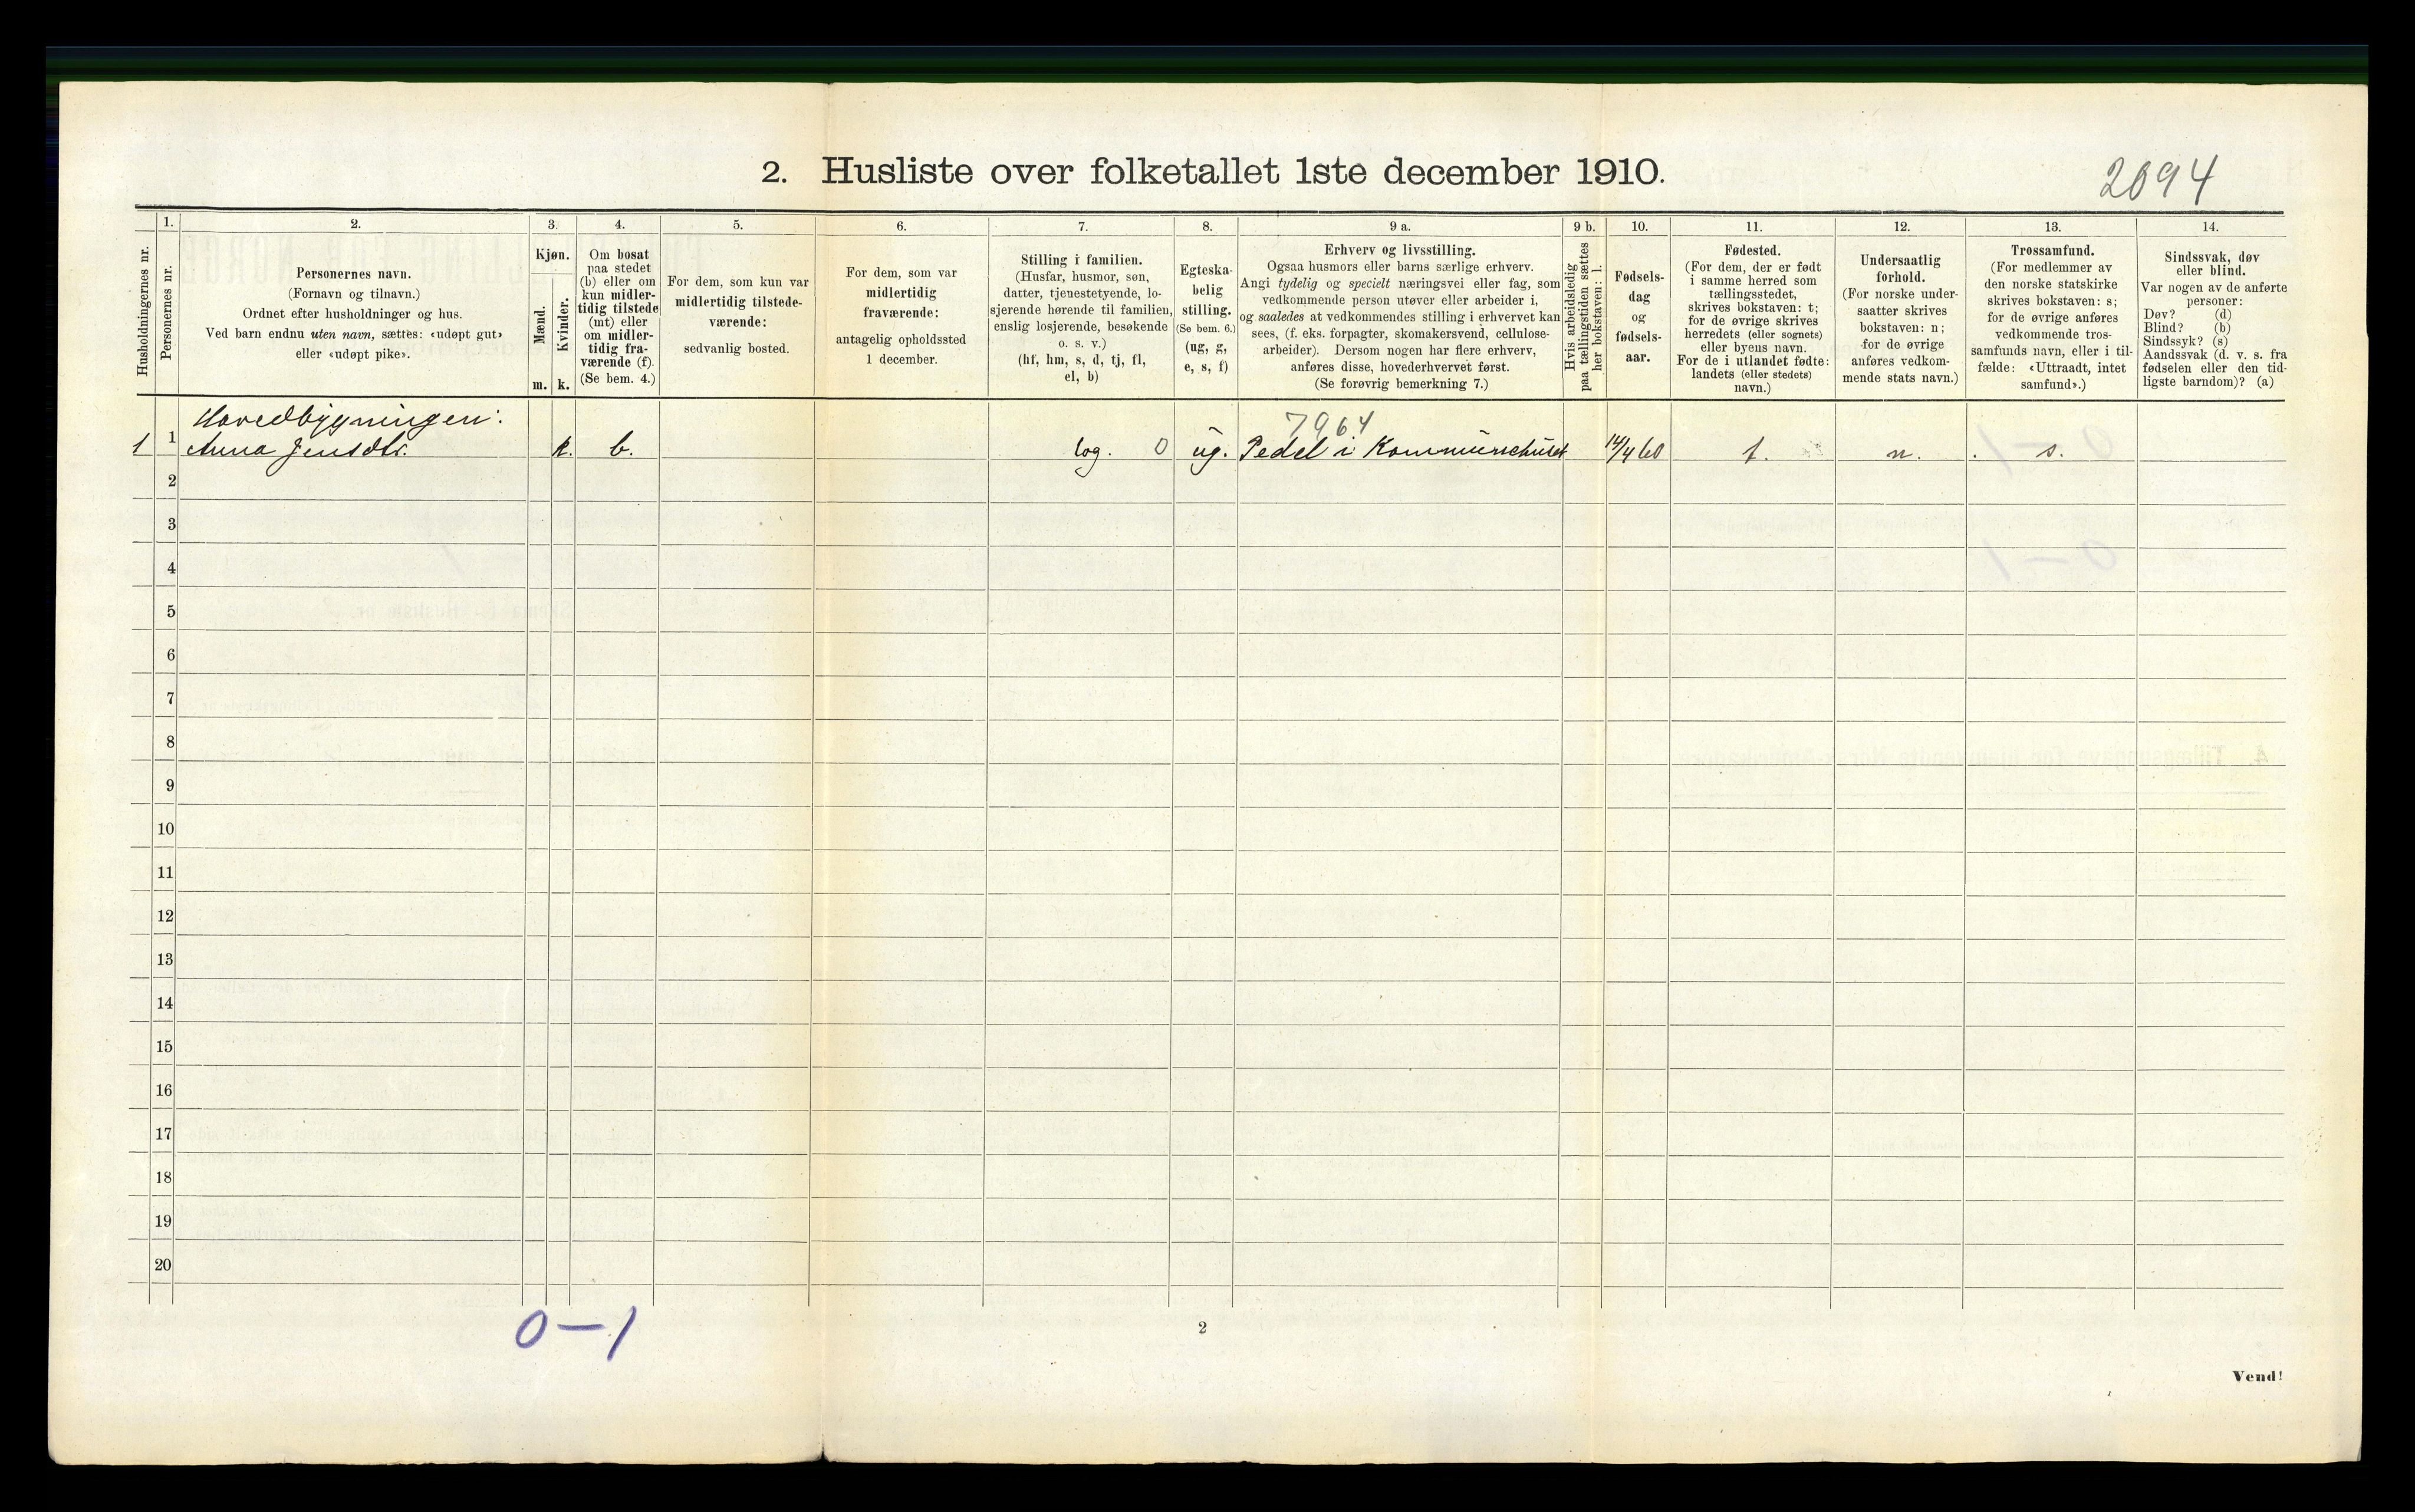 2. Husliste over folketallet 1ste december 1910.
2094
Husholdningernes nr.
1.
Personernes nr.
2.
Personernes navn.
(Fornavn og tilnavn.)
Ordnet efter husholdninger og hus.
Ved barn endnu uten navn, sættes: «udøpt gut»
eller «udøpt pike».
3.
Kjøn.
Mænd.
Kvinder.
m. k.
4.
Om bosat
paa stedet
(b) eller om
kun midler-
tidig tilstede
(mt) eller
om midler-
tidig fra-
værende (f).
(Se bem. 4.)
5.
For dem, som kun var
midlertidig tilstede-
værende:
sedvanlig bosted.
6.
For dem, som var
midlertidig
fraværende:
antagelig opholdssted
1 december.
7.
Stilling i familien.
(Husfar, husmor, søn,
datter, tjenestetyende, lo-
sjerende hørende til familien,
enslig losjerende, besøkende
o. s. v.)
(hf, hm, s, d, tj, fl,
el, b)
8.
Egteska-
belig
stilling.
(Se bem. 6.)
(ug, g,
e, s, f)
9 a.
Erhverv og livsstilling.
Ogsaa husmors eller barns særlige erhverv.
Angi tydelig og specielt næringsvei eller fag, som
vedkommende person utøver eller arbeider i,
og saaledes at vedkommendes stilling i erhvervet kan
sees, (f. eks. forpagter, skomakersvend, cellulose-
arbeider). Dersom nogen har flere erhverv,
anføres disse, hovederhvervet først.
(Se forøvrig bemerkning 7.)
9 b.
Hvis arbeidsledig
paa tællingstiden sættes
her bokstaven: l.
10.
Fødsels-
dag
og
fødsels-
aar.
11.
Fødested.
(For dem, der er født
i samme herred som
tællingsstedet,
skrives bokstaven: t;
for de øvrige skrives
herredets (eller sognets)
eller byens navn.
For de i utlandet fødte:
landets (eller stedets)
navn.)
12.
Undersaatlig
forhold.
(For norske under-
saatter skrives
bokstaven: n;
for de øvrige
anføres vedkom-
mende stats navn.)
13.
Trossamfund.
(For medlemmer av
den norske statskirke
skrives bokstaven: s;
for de øvrige anføres
vedkommende tros-
samfunds navn, eller i til-
fælde: «Uttraadt, intet
samfund».)
14.
Sindssvak, døv
eller blind.
Var nogen av de anførte
personer:
Døv? (d)
Blind? (b)
Sindssyk? (s)
Aandssvak (d. v. s. fra
fødselen eller den tid-
ligste barndom)? (a)
Hovedbygningen:
7964
1 1 Anna Jensdtr. k. b. log. 0 ug. Pedel i Kommunehuset 14/4 60 t. n. s.
2
3
4
5
6
7
8
9
10
11
12
13
14
15
16
17
18
19
20
0—1
2
Vend!